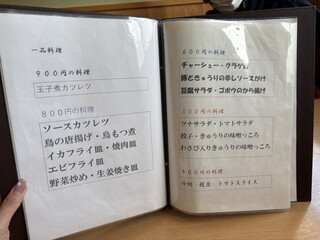 一品料理
900円の料理
玉子煮カツレツ
800円の料理
ソースカツレツ
鳥の唐揚げ・鳥もつ煮
イカフライ皿・焼肉皿
エビフライ皿
野菜炒め・生姜焼き皿
600円の料理
チャーシュー・クラゲ酢
豚ときゅうりの辛しソースがけ
豆腐サラダ・ゴボウのから揚げ
500円の料理
ツナサラダ・トマトサラダ
餃子・きゅうりの味噌っころ
わさび入りきゅうりの味噌っころ
400円の料理
冷奴・枝豆・トマトスライス